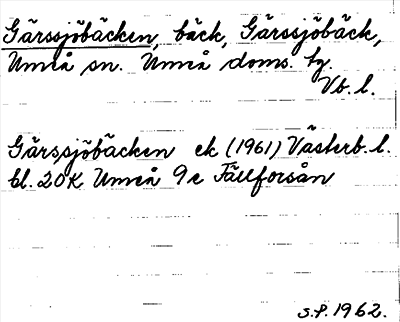 Gärssjöbäcken, bäck, Gärssjöbäck,
Umeå sn. Umeå doms. tg.
Vb. l.
Gärssjöbäcken ek (1961) Västerb. l.
bl. 20K Umeå 9e Fällforsån
S.P. 1962.